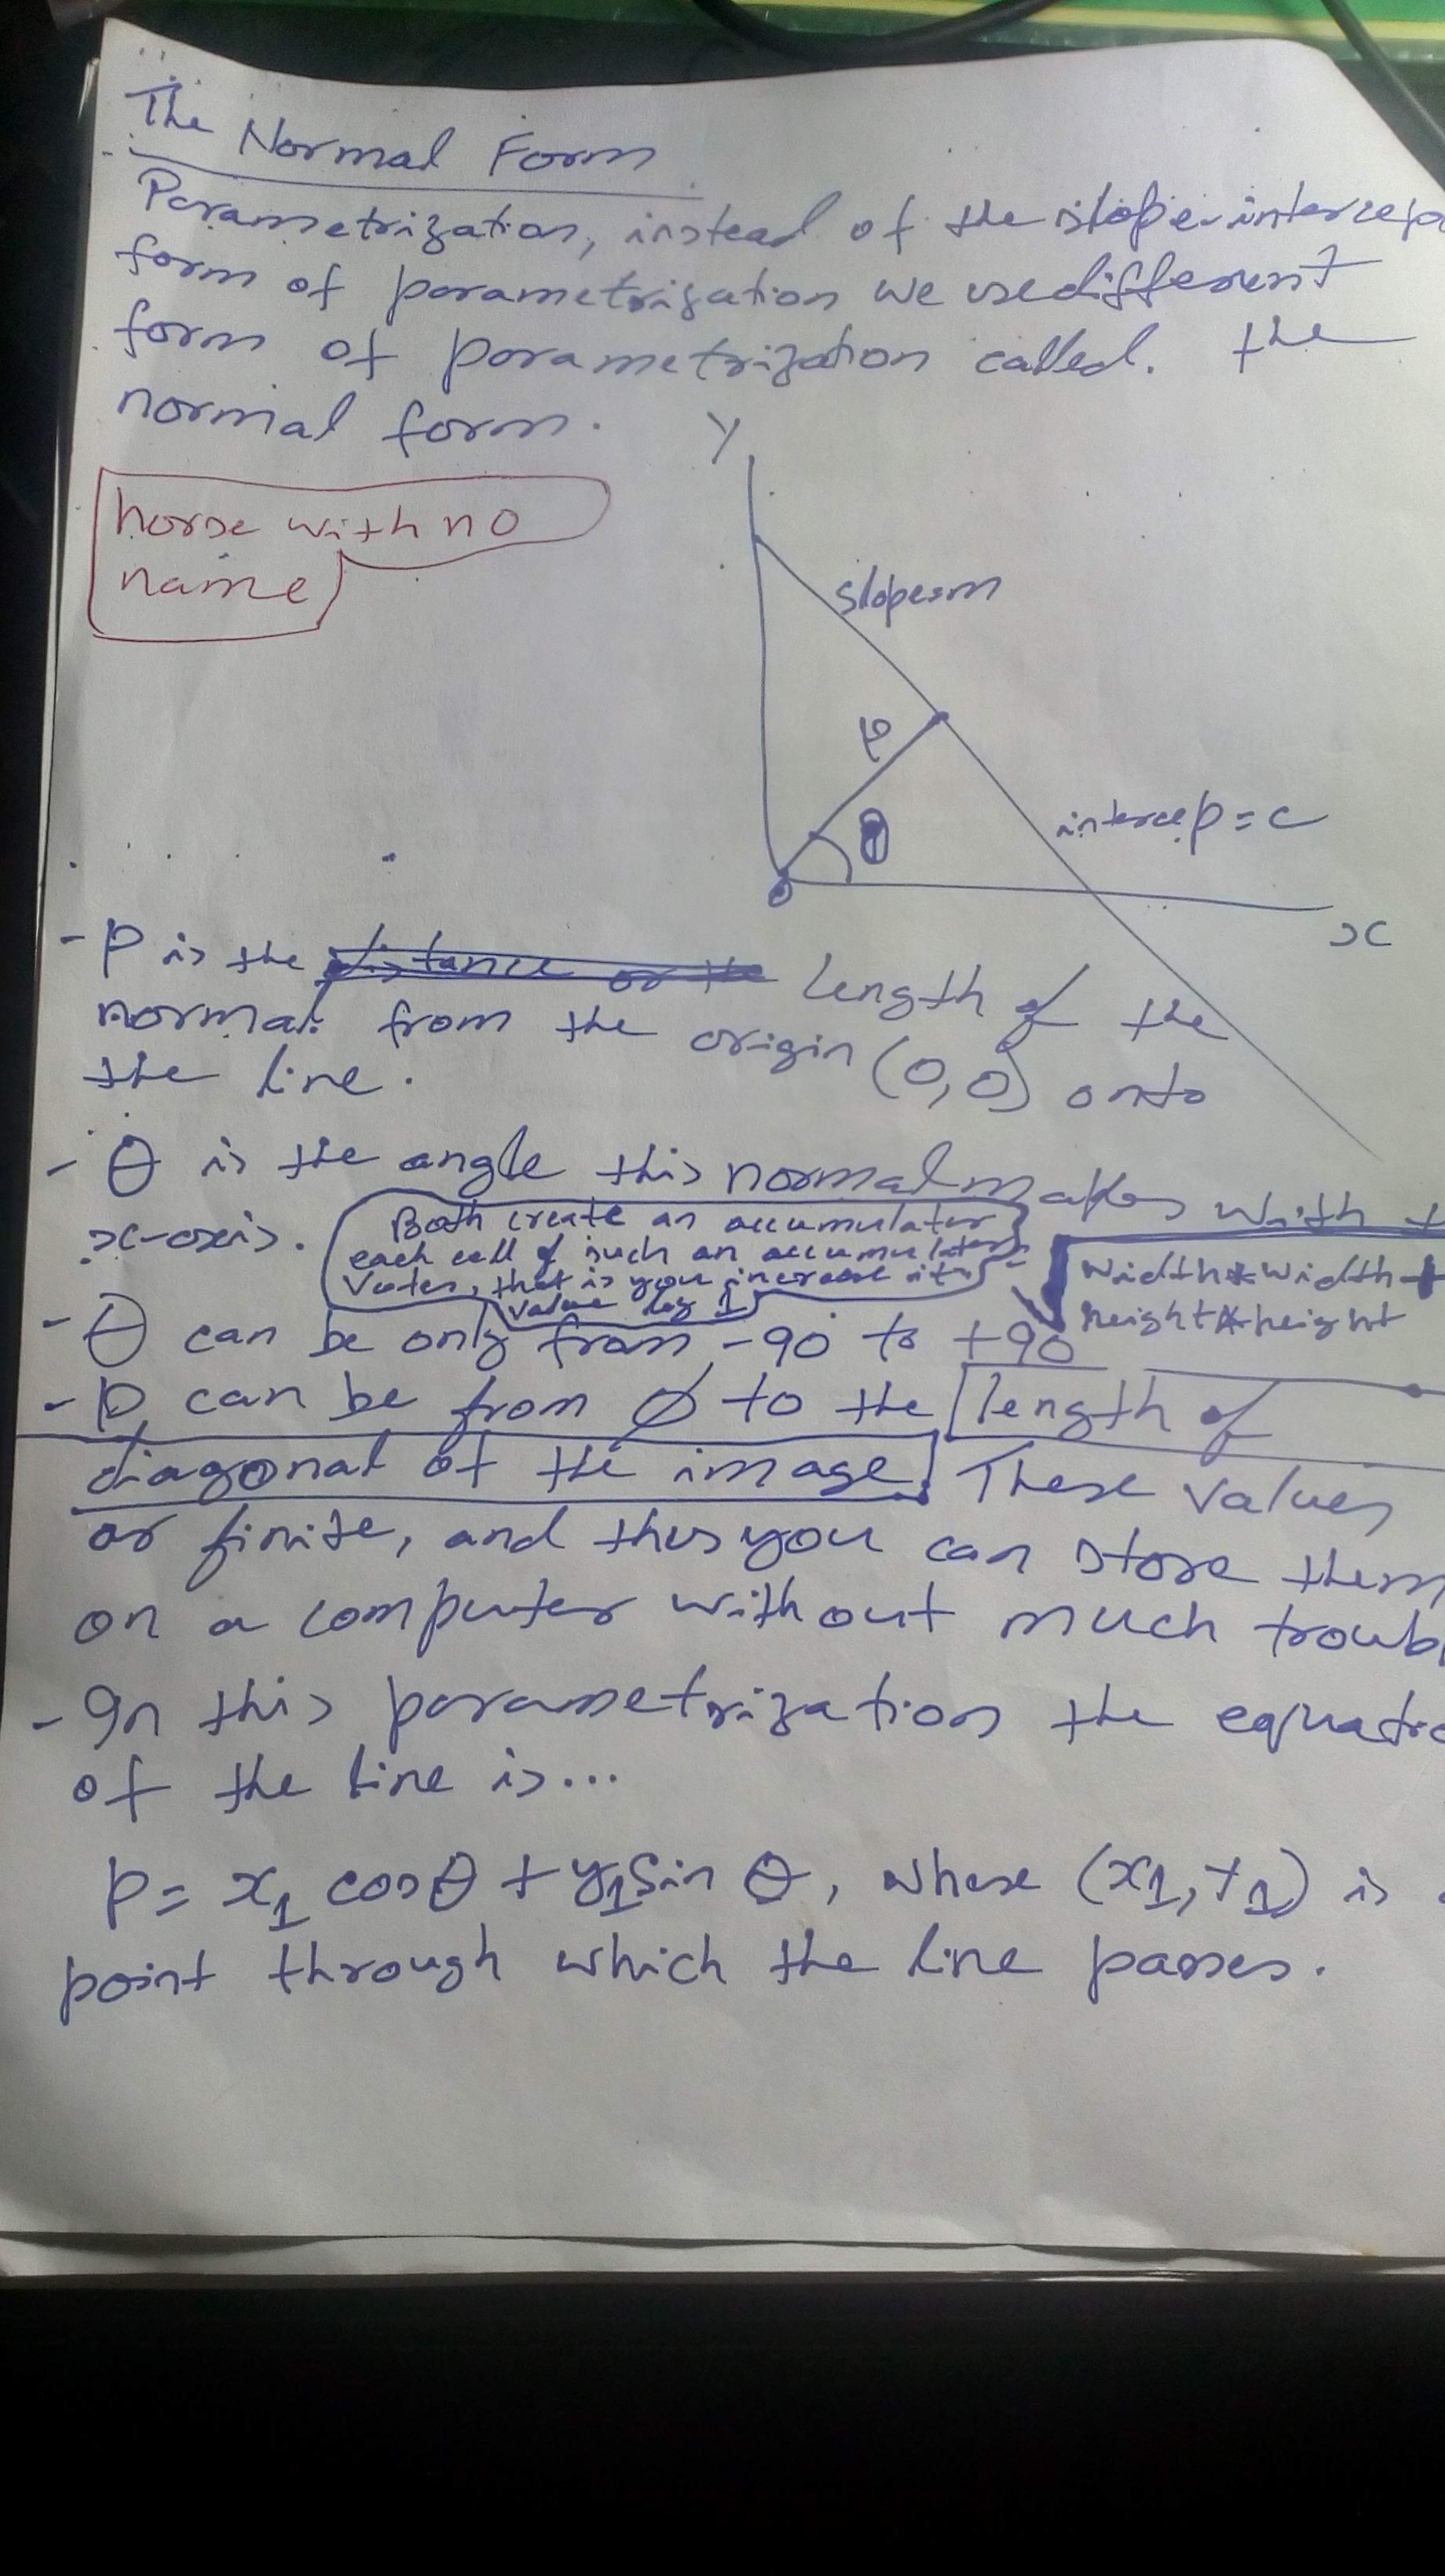 The Normal Form
Parametrization, instead of the slope-intercep
form of parametrization we use different
form of parametrization called. the
normal form.
Y
horse with no
name
slope=m
P
θ
intercep=c
0
x
- P is the distance or the length of the
normal from the origin (0,0) onto
the line.
- θ is the angle this normal makes with t
x-axis.
Both create an accumulator
each cell of such an accumulator
Votes, that is you increase its
value by 1
width*width+
height*height
- θ can be only from -90 to +90
- P can be from 0 to the length of
diagonal of the image. These values
or finite, and thus you can store them
on a computer without much troubl
- In this parametrization the equatio
of the line is...
p= x1 cosθ + y1 sin θ, where (x1,y1) is
point through which the line passes.